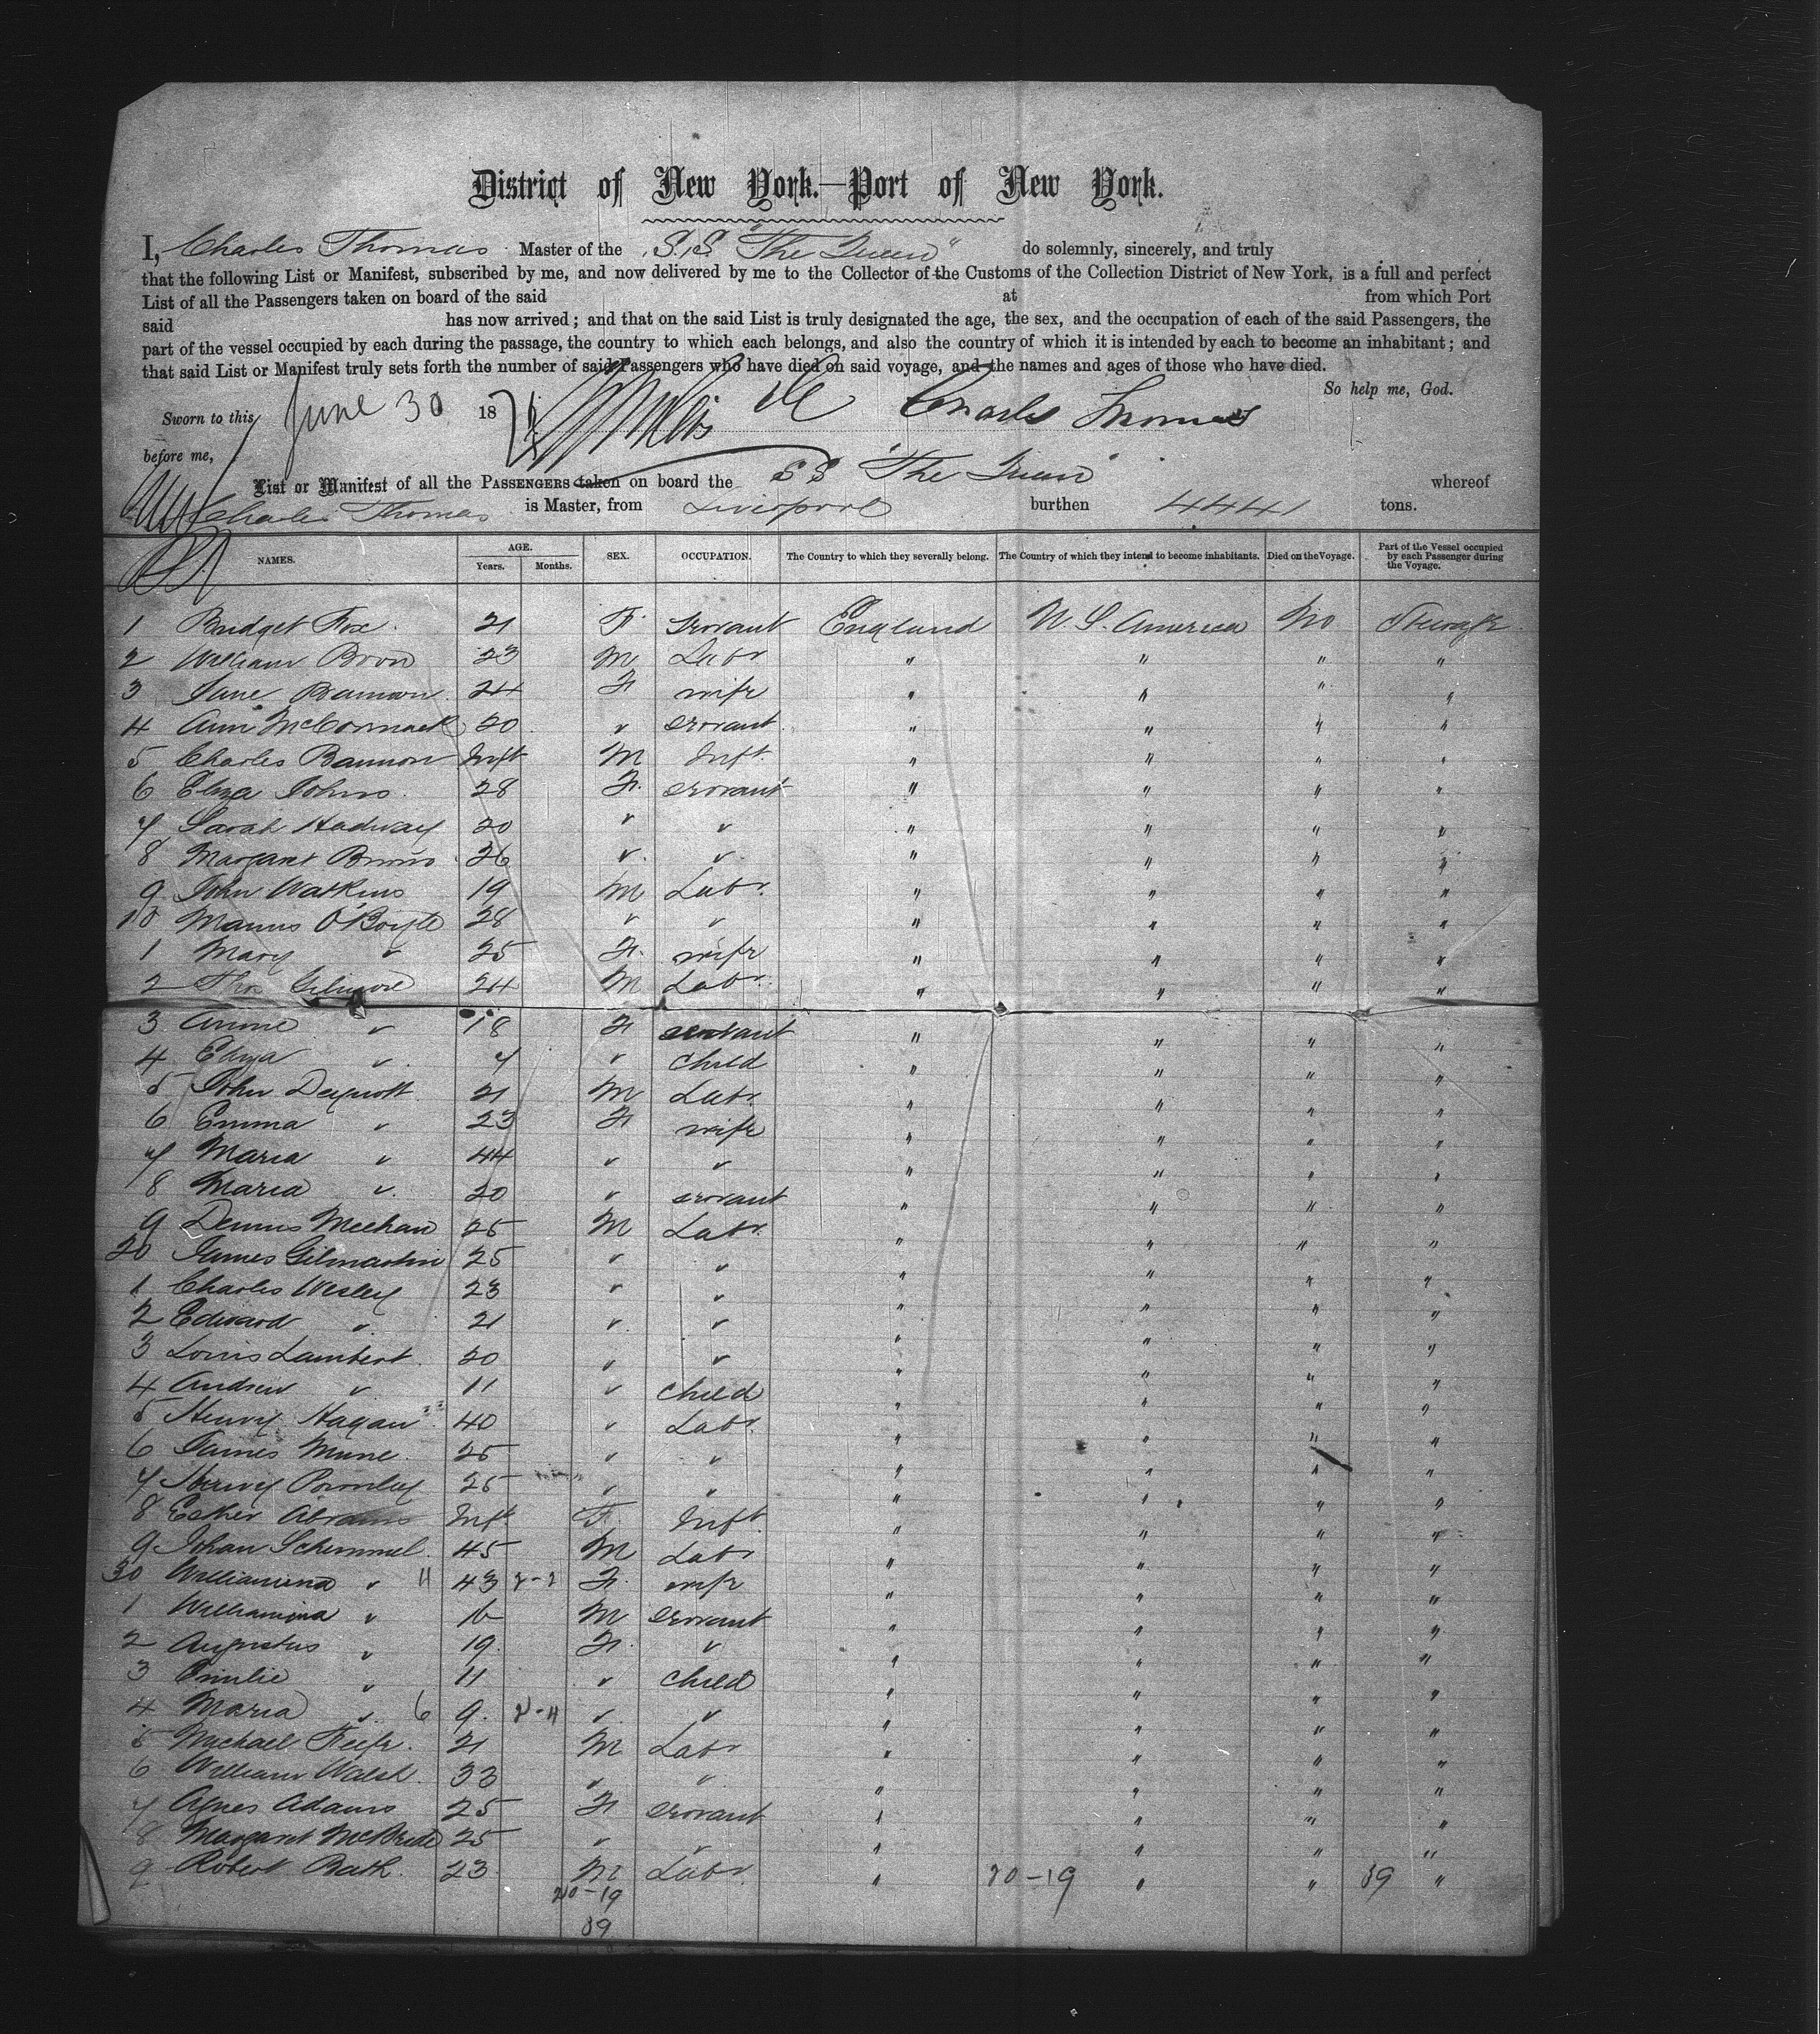 District of New York.—Port of New York.
I, Charles Thomas Master of the S.S. "The Queen" do solemnly, sincerely, and truly
that the following List or Manifest, subscribed by me, and now delivered by me to the Collector of the Customs of the Collection District of New York, is a full and perfect
List of all the Passengers taken on board of the said at from which Port
said has now arrived; and that on the said List is truly designated the age, the sex, and the occupation of each of the said Passengers, the
part of the vessel occupied by each during the passage, the country to which each belongs, and also the country of which it is intended by each to become an inhabitant; and
that said List or Manifest truly sets forth the number of said Passengers who have died on said voyage, and the names and ages of those who have died.
So help me, God.
Sworn to this June 30 187 Charles Thomas
before me,
List or Manifest of all the PASSENGERS taken on board the S S "The Queen" whereof
Charles Thomas is Master, from Liverpool burthen 4441 tons.
NAMES. AGE. Years. Months. SEX. OCCUPATION. The Country to which they severally belong. The Country of which they intend to become inhabitants. Died on the Voyage. Part of the Vessel occupied by each Passenger during the Voyage.
1 Bridget Fox 21 F. Servant England U. S. America No Steerage
2 William 23 M Labr " " " "
3 Jane Bannon 24 F wife " " " "
4 Ann McCormack 20 " servant " " " "
5 Charles Bannon Inft M Inft. " " " "
6 Eliza Johns 28 F. servant " " " "
7 Sarah Hadway 20 " " " " " "
8 Margaret Burns 26 " " " " " "
9 John Watkins 19 M Labr. " " " "
10 Manus O'Boyle 28 " " " " " "
1 Mary " 25 F. wife " " " "
2 Thos Gilmore 24 M Labr. " " " "
3 Annie " 18 F servant " " " "
4 Eliza " 7 " child " " " "
5 John 21 M Labr. " " " "
6 Emma " 23 F wife " " " "
7 Maria " 44 " " " " " "
8 Maria " 20 " servant " " " "
9 Dennis Meehan 25 M Labr. " " " "
20 James Gilmartin 25 " " " " " "
1 Charles Wesley 23 " " " " " "
2 Edward " 21 " " " " " "
3 Louis Lambert 20 " " " " " "
4 Andrew " 11 " child " " " "
5 Henry Hagan 40 " Labr. " " " "
6 James 25 " " " " " "
7 Henry 25 " " " " " "
8 Esther Abrams Inft F. Inft. " " " "
9 Johan Schimmel 45 M Labr " " " "
30 Williamina " 11 43 2-2 F. wife " " " "
1 Williamina " 16 M servant " " " "
2 Augustus " 19. F. " " " " "
3 Emilie " 11 " child " " " "
4 Maria " 6 9. 2-11 " " " " " "
5 Michael 21 M Labr " " " "
6 William Walsh 33 " " " " " "
7 Agnes Adams 25 F servant " " " "
8 Margaret McBride 25 " " " " " "
9 Robert Bath 23 M Labr. " 20-19 " " 39 "
20-19
39